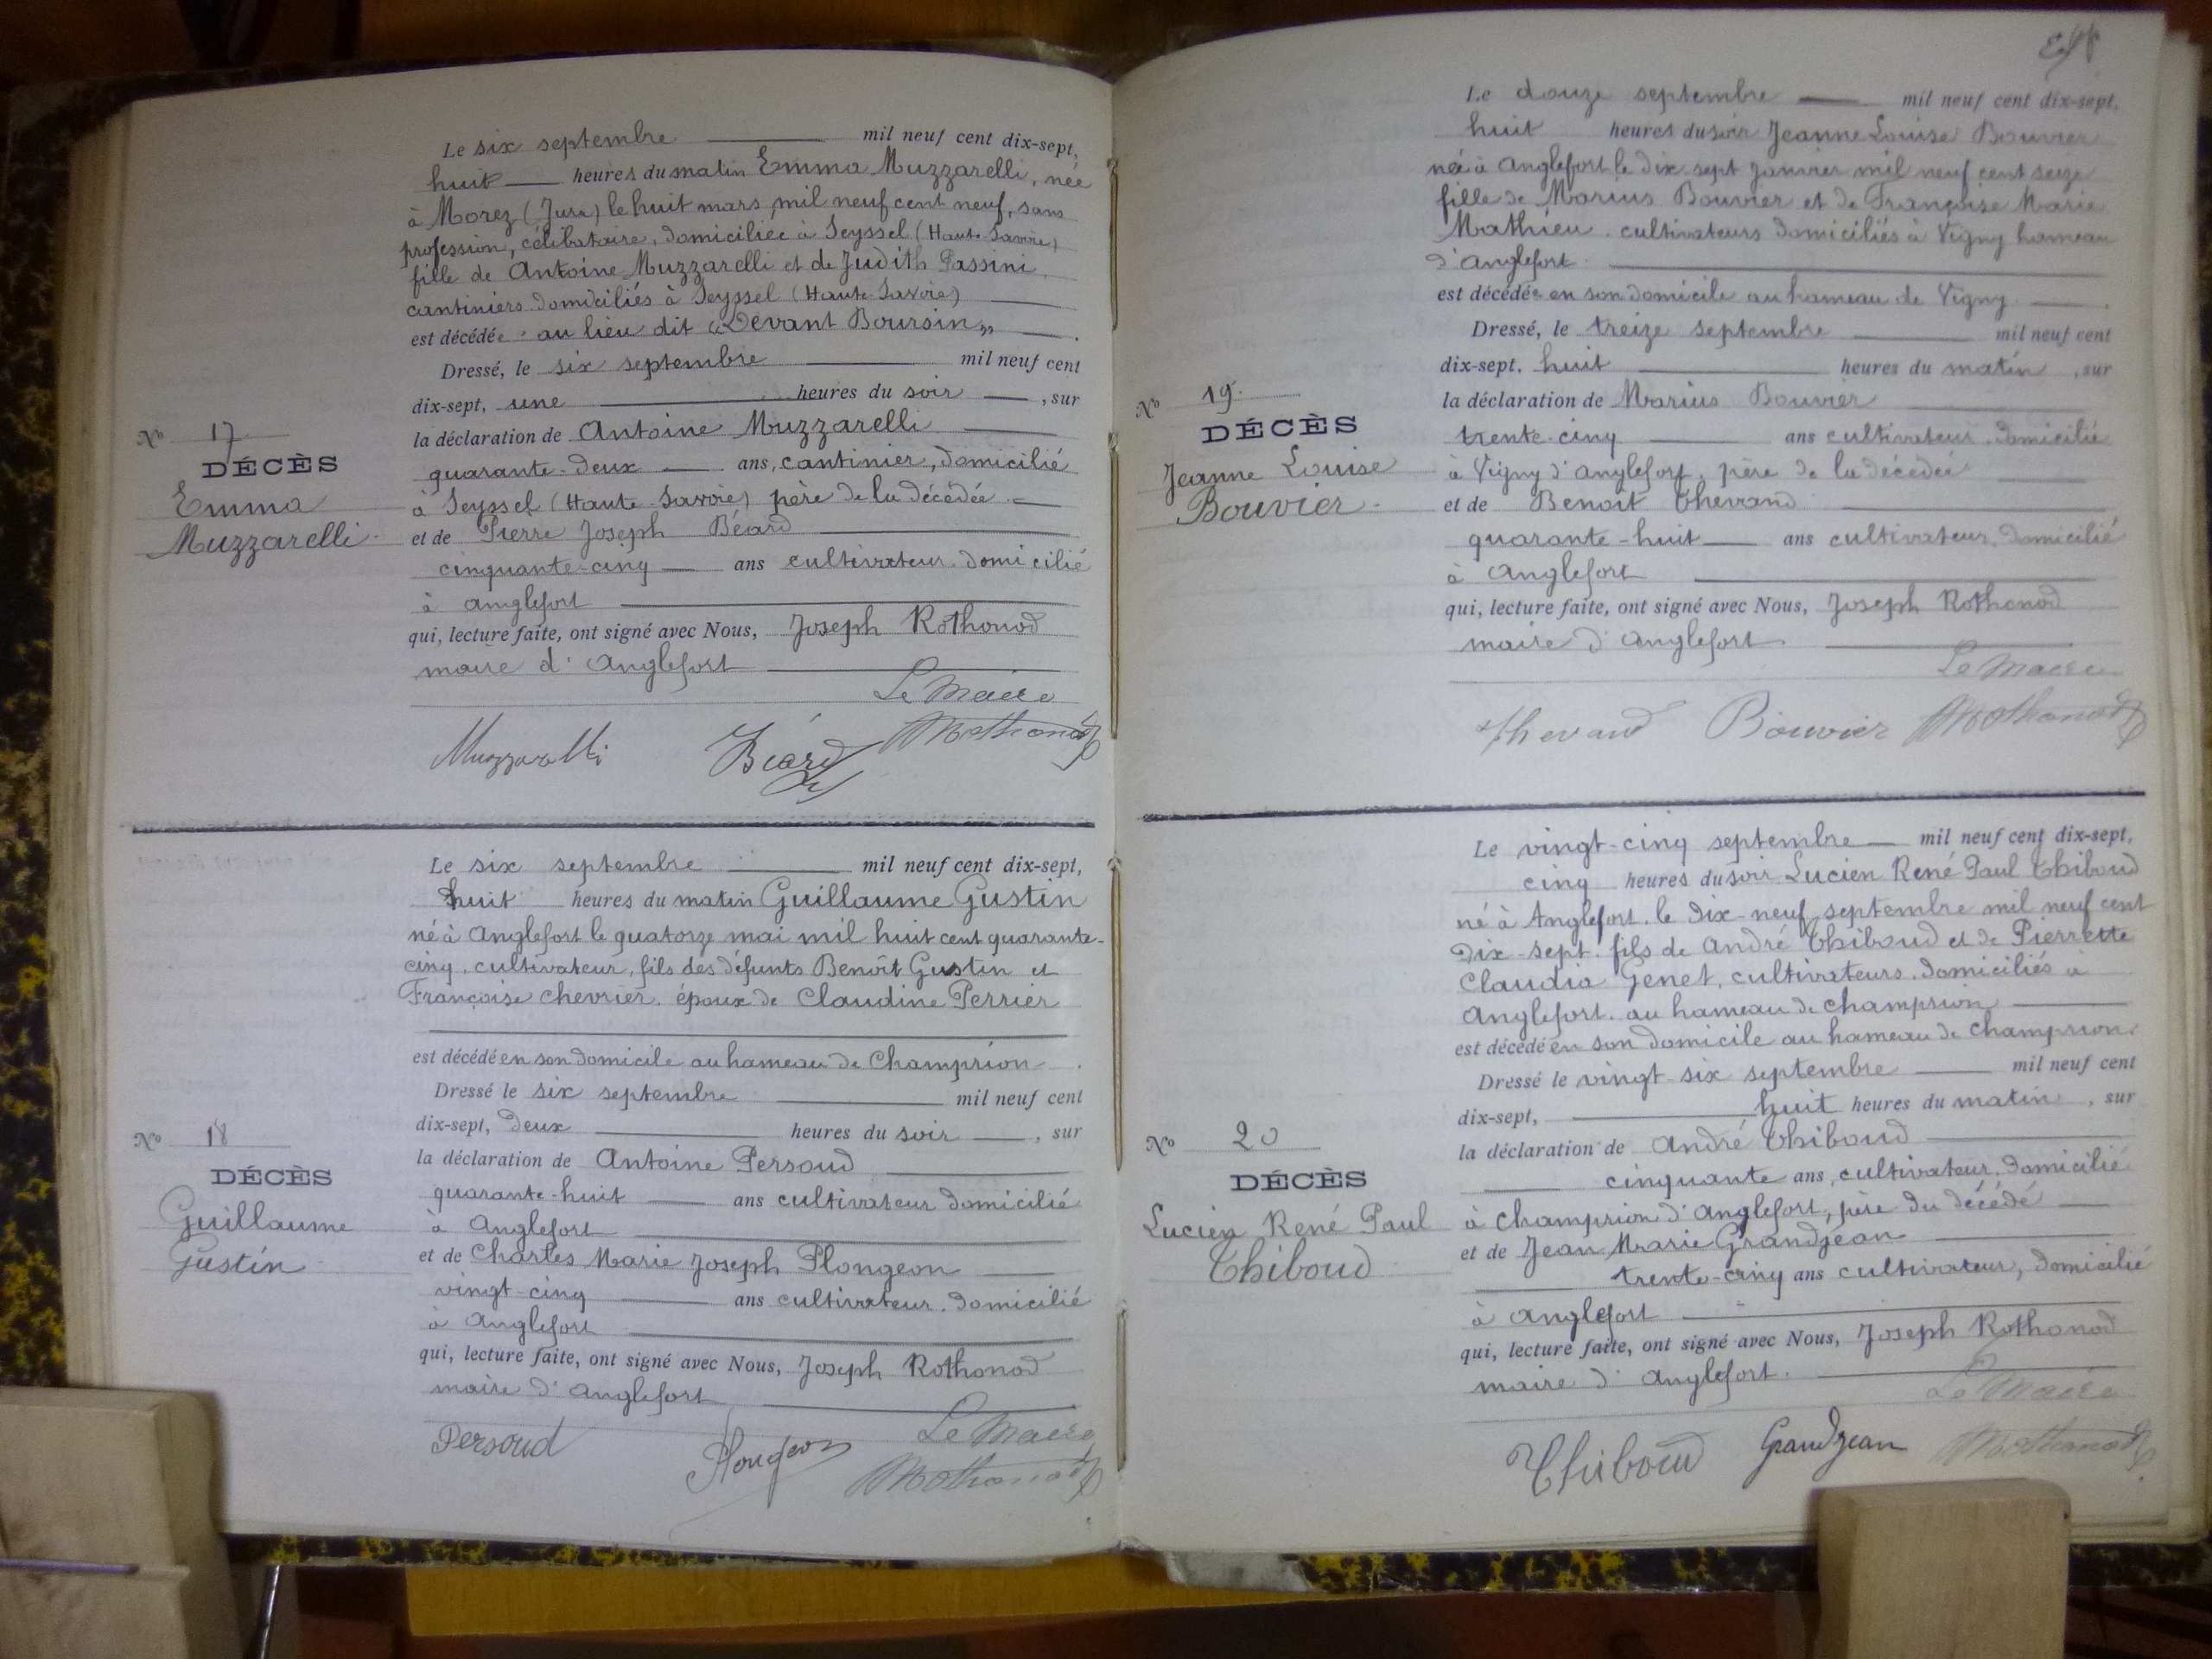 Le six septembre mil neuf cent dix-sept,
huit heures du matin Emma Muzzarelli, née
à Morez (Jura) le huit mars mil neuf cent neuf, sans
profession, célibataire, domiciliée à Seyssel (Haute-Savoie)
fille de Antoine Muzzarelli et de Judith Passini
cantiniers domiciliés à Seyssel (Haute Savoie)
est décédée au lieu dit «Devant Boursin»
Dressé, le six septembre mil neuf cent
dix-sept, une heures du soir, sur
la déclaration de Antoine Muzzarelli
No 17
DÉCÈS
Emma
Muzzarelli
quarante-deux ans, cantinier, domicilié
à Seyssel (Haute Savoie) père de la décédée
et de Pierre Joseph Béard
cinquante-cinq ans cultivateur domicilié
à Anglefort
qui, lecture faite, ont signé avec Nous, Joseph Rothonod
maire d'Anglefort
Le Maire
Muzzarelli Béard Rothonod
Le six septembre mil neuf cent dix-sept,
huit heures du matin Guillaume Gustin
né à Anglefort le quatorze mai mil huit cent quarante-
cinq, cultivateur, fils des défunts Benoît Gustin et
Françoise Chevrier, époux de Claudine Perrier
est décédé en son domicile au hameau de Champrion
Dressé le six septembre mil neuf cent
dix-sept, deux heures du soir, sur
la déclaration de Antoine Persoud
No 18
DÉCÈS
Guillaume
Gustin
quarante-huit ans cultivateur domicilié
à Anglefort
et de Charles Marie Joseph Plongeon
vingt-cinq ans cultivateur. domicilié
à Anglefort
qui, lecture faite, ont signé avec Nous, Joseph Rothonod
maire d'Anglefort
Persoud Plongeon Le Maire
Rothonod
Le douze septembre mil neuf cent dix-sept,
huit heures du soir Jeanne Louise Bouvier
née à Anglefort le dix-sept janvier mil neuf cent seize
fille de Marius Bouvier et de Françoise Marie
Mathieu. cultivateurs domiciliés à Vigny hameau
d'Anglefort
est décédée en son domicile au hameau de Vigny
Dressé, le treize septembre mil neuf cent
dix-sept, huit heures du matin, sur
la déclaration de Marius Bouvier
No 19.
DÉCÈS
Jeanne Louise
Bouvier
trente-cinq ans cultivateur. domicilié
à Vigny d'Anglefort, père de la décédée
et de Benoît Thevand
quarante-huit ans cultivateur. domicilié
à Anglefort
qui, lecture faite, ont signé avec Nous, Joseph Rothonod
maire d'Anglefort
Le Maire
Thevand Bouvier Rothonod
Le vingt-cinq septembre mil neuf cent dix-sept,
cinq heures du soir Lucien René Paul Thiboud
né à Anglefort. le dix-neuf septembre mil neuf cent
dix-sept. fils de André Thiboud et de Pierrette
Claudia Genet, cultivateurs. domiciliés à
Anglefort. au hameau de Champrion
est décédé en son domicile au hameau de Champrion
Dressé le vingt-six septembre mil neuf cent
dix-sept, huit heures du matin, sur
la déclaration de André Thiboud
No 20
DÉCÈS
Lucien René Paul
Thiboud
cinquante ans, cultivateur. domicilié
à Champrion d'Anglefort, père du décédé
et de Jean Marie Grandjean
trente-cinq ans cultivateur, domicilié
à Anglefort
qui, lecture faite, ont signé avec Nous, Joseph Rothonod
maire d'Anglefort.
Le Maire
Thiboud Grandjean Rothonod